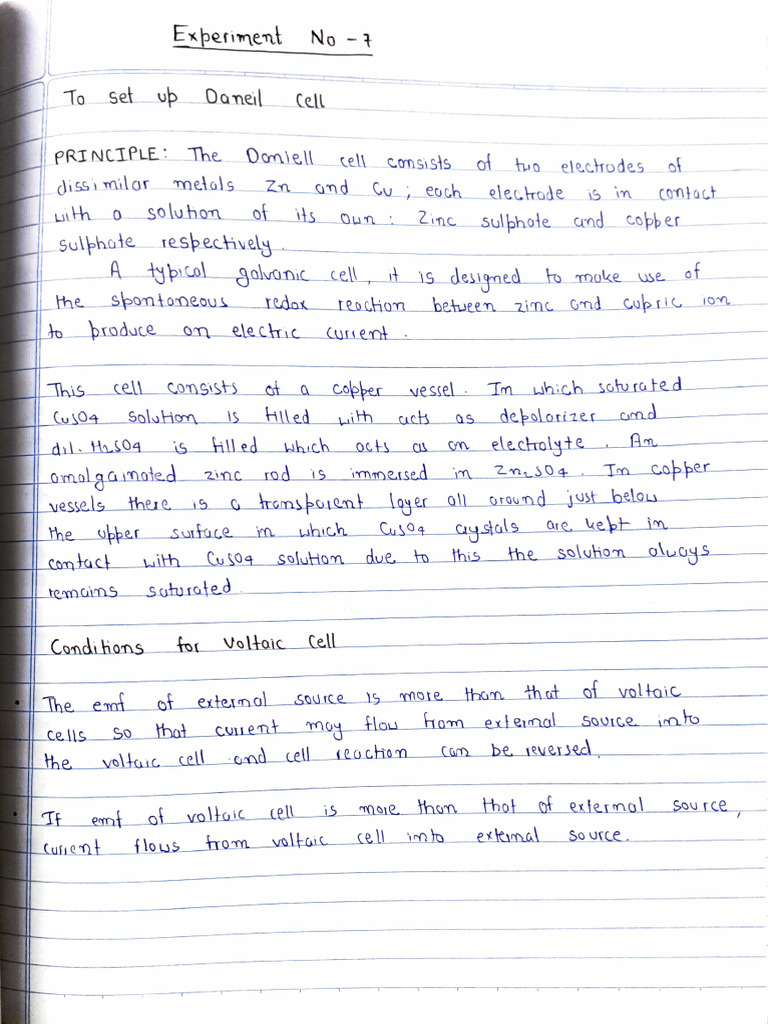 Experiment No - 7
To set up Daneil Cell
PRINCIPLE: The Daniell cell consists of two electrodes of
dissimilar metals Zn and Cu ; each electrode is in contact
with a solution of its own : Zinc sulphate and copper
sulphate respectively.
A typical galvanic cell, it is designed to make use of
the spontaneous redox reaction between zinc and cupric ion
to produce an electric current .
This cell consists of a copper vessel. In which saturated
CuSO4 solution is filled with acts as depolarizer and
dil. H2SO4 is filled which acts as an electrolyte . An
amalgamated zinc rod is immersed in Zn2SO4 . In copper
vessels there is a transparent layer all around just below
the upper surface in which CuSO4 crystals are kept in
contact with CuSO4 solution due to this the solution always
remains saturated.
Conditions for Voltaic Cell
• The emf of external source is more than that of voltaic
cells so that current may flow from external source into
the voltaic cell and cell reaction can be reversed.
• If emf of voltaic cell is more than that of external source,
current flows from voltaic cell into external source.